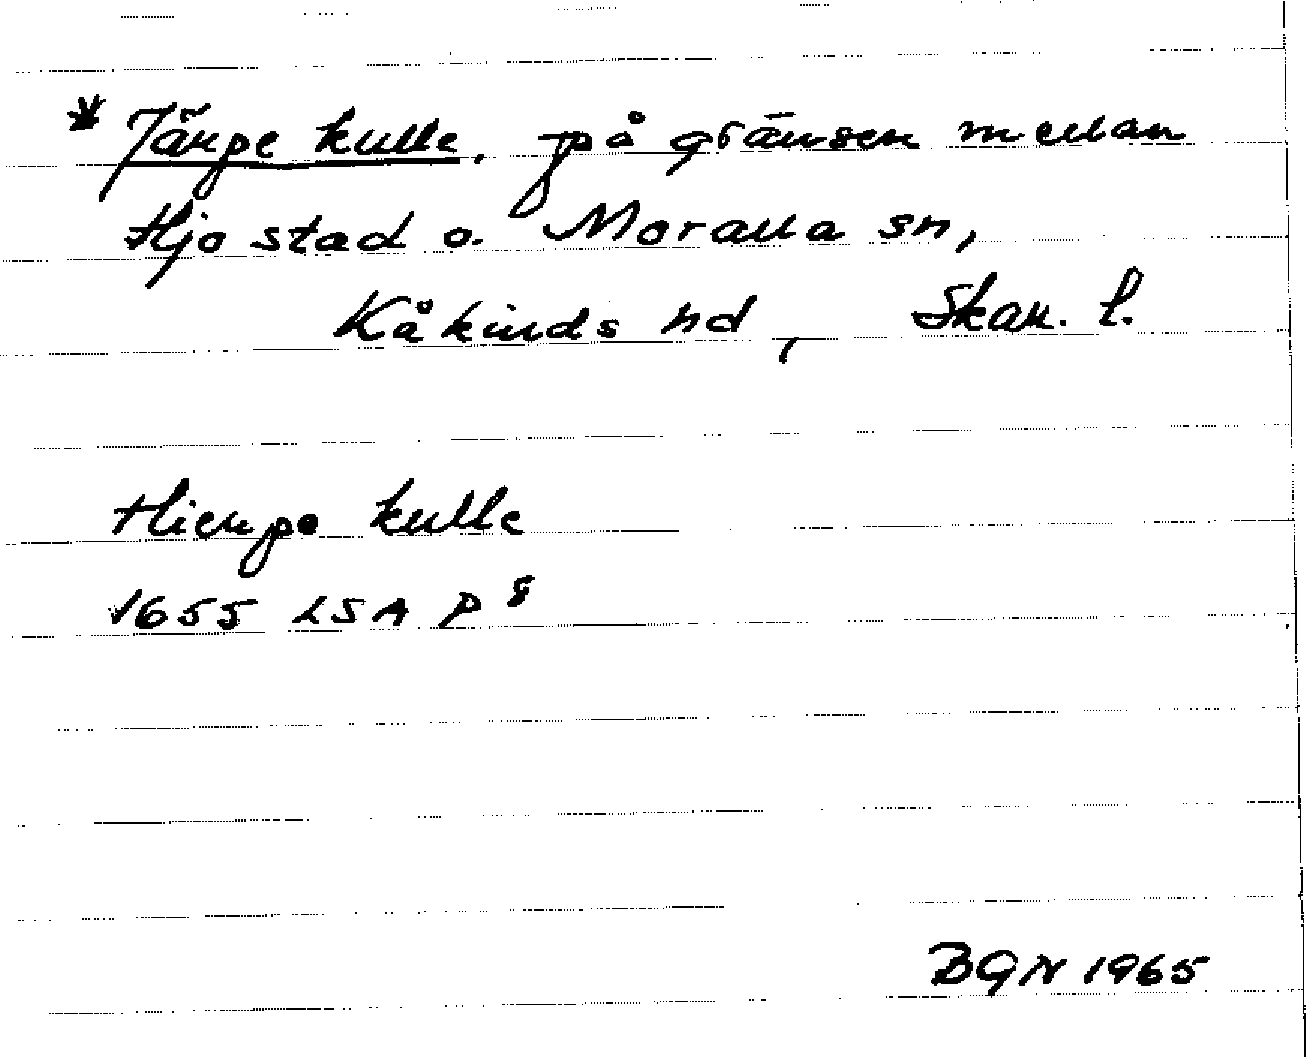 * Järpe kulle, på gränsen mellan
Hjo stad o. Moralla sn,
Kåkinds hd, Skar. l.
Hierpe kulle
1655 LSA P 8
BGN 1965